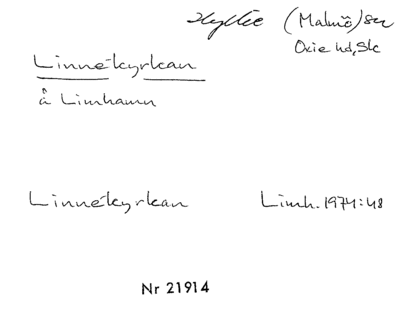 Hyllie (Malmö) sn
Oxie hd, Sk
Linnékyrkan
å Limhamn
Linnékyrkan Limh. 1974:48
Nr 21914